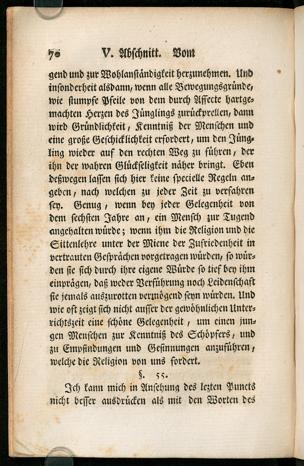 70 V. Abschnitt. Vom
gend und zur Wohlanständigkeit herzunehmen. Und
insonderheit alsdann, wenn alle Bewegungsgründe,
wie stumpfe Pfeile von dem durch Affecte hartge-
machten Herzen des Jünglings zurückprellen, dann
wird Gründlichkeit, Kenntniß der Menschen und
eine große Geschicklichkeit erfordert, um den Jüng-
ling wieder auf den rechten Weg zu führen, der
ihn der wahren Glückseligkeit näher bringt. Eben
deßwegen lassen sich hier keine specielle Regeln an-
geben, nach welchen zu jeder Zeit zu verfahren
sey. Genug, wenn bey jeder Gelegenheit von
dem sechsten Jahre an, ein Mensch zur Tugend
angehalten würde; wenn ihm die Religion und die
Sittenlehre unter der Miene der Zufriedenheit in
vertrauten Gesprächen vorgetragen würden, so wür-
den sie sich durch ihre eigene Würde so tief bey ihm
einprägen, daß weder Verführung noch Leidenschaft
sie jemals auszurotten vermögend seyn würden. Und
wie oft zeigt sich nicht ausser der gewöhnlichen Unter-
richtszeit eine schöne Gelegenheit, um einen jun-
gen Menschen zur Kenntniß des Schöpfers, und
zu Empfindungen und Gesinnungen anzuführen,
welche die Religion von uns fordert.
§. 55.
Ich kann mich in Ansehung des lezten Puncts
nicht besser ausdrücken als mit den Worten des